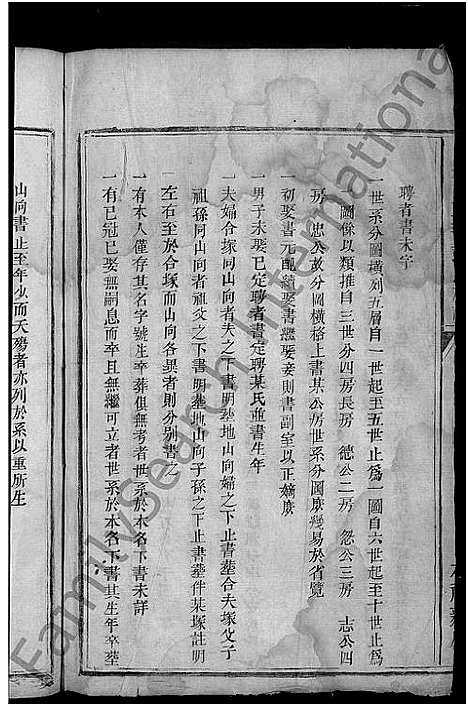 聘者書未字
一世系分圖橫列五層自一世起至五世止為一圖自六世起至十世止為
圖餘以類推自三世分四房長房 德公二房 忽公三房 志公四
房 忠公故分圖橫格上書某公房世系分圖庶幾易於省覽
一初娶書元配續娶書繼娶妾則書副室以正嫡庶
一男子未娶已定聘者書定聘某氏並書生年
一夫婦合塚同山向者夫之下書明塟地山向婦之下止書塟合夫塚父子
祖孫同山向者祖父之下書明塟地山向子孫之下止書塟伴某塚註明
左右至於合塚而山向各異者則分別書之
一有本人僅存其名字號生卒葬俱無考者世系於本名下書未詳
一有已冠已娶無嗣息而卒且無繼可立者世系於本名下書其生年卒塟
山向書止至年少而夭殤者亦列於系以重所生
Family Search International